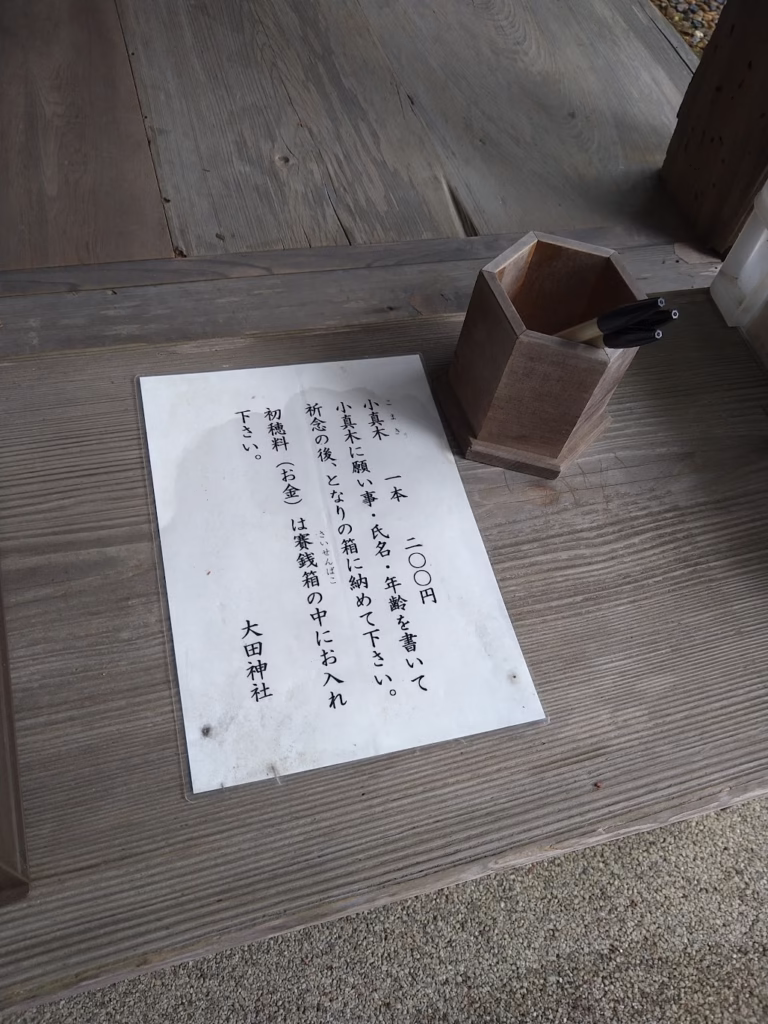 小真木　一本　二〇〇円
こまき
小真木に願い事・氏名・年齢を書いて
祈念の後、となりの箱に納めて下さい。
初穂料（お金）は賽銭箱の中にお入れ
さいせんばこ
下さい。
大田神社